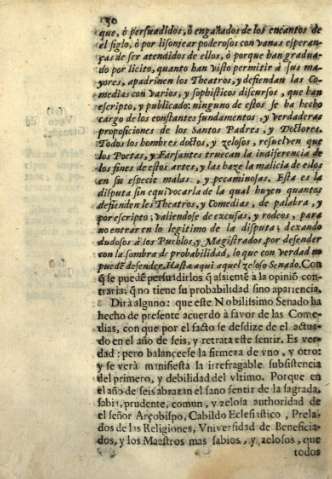 130
que, ò persuadidos, ò engañados de los encantos de
el siglo, ò por lisonjear poderosos con vanas esperan-
ças de ser atendidos de ellos, ò porque han gradua-
do por licito, quanto han visto permitir à sus ma-
yores, apadrinen los Theatros, y defiendan las Co-
medias con varios, y sophisticos discursos, que han
escripto, y publicado: ninguno de estos se ha hecho
cargo de los constantes fundamentos, y verdaderas
proposiciones de los Santos Padres, y Doctores.
Todos los hombres doctos, y zelosos, resuelven que
los Poetas, y Farsantes truecan la indiferencia de
los fines de estas artes, y las haze la malicia de ellos
en su especie malas, y perniciosas. Esta es la
disputa sin equivocarla de la qual huyen quantos
defienden los Theatros, y Comedias, de palabra, y
por escripto; valiendose de excusas, y rodeos, para
no entrar en lo legitimo de la disputa; dexando
dudosos à los Pueblos, y Magistrados, por defender
con la sombra de probabilidad, lo que con verdad no
puedẽ defender. Hasta aqui aquel zeloso Senado. Con
q̃ se puedẽ persuadir los q̃ assiente à la opiniõ con-
traria: q̃ no tiene su probabilidad sino apariencia.
Dirà alguno: que este Nobilissimo Senado ha
hecho de presente acuerdo à favor de las Come-
dias, con que por el facto se desdize de el actua-
do en el año de seis, y retrata este sentir. Es ver-
dad: pero balanceese la firmeza de vno, y otro:
y se verà manifiesta la irrefragable subsistencia
del primero, y debilidad del vltimo. Porque en
el año de seis abrazan el sano sentir de la sagrada,
sabia, prudente, comun, y zelosa authoridad de
el señor Arçobispo, Cabildo Eclesiastico, Prela-
dos de las Religiones, Vniversidad de Beneficia-
dos, y los Maestros mas sabios, y zelosos, que
todos